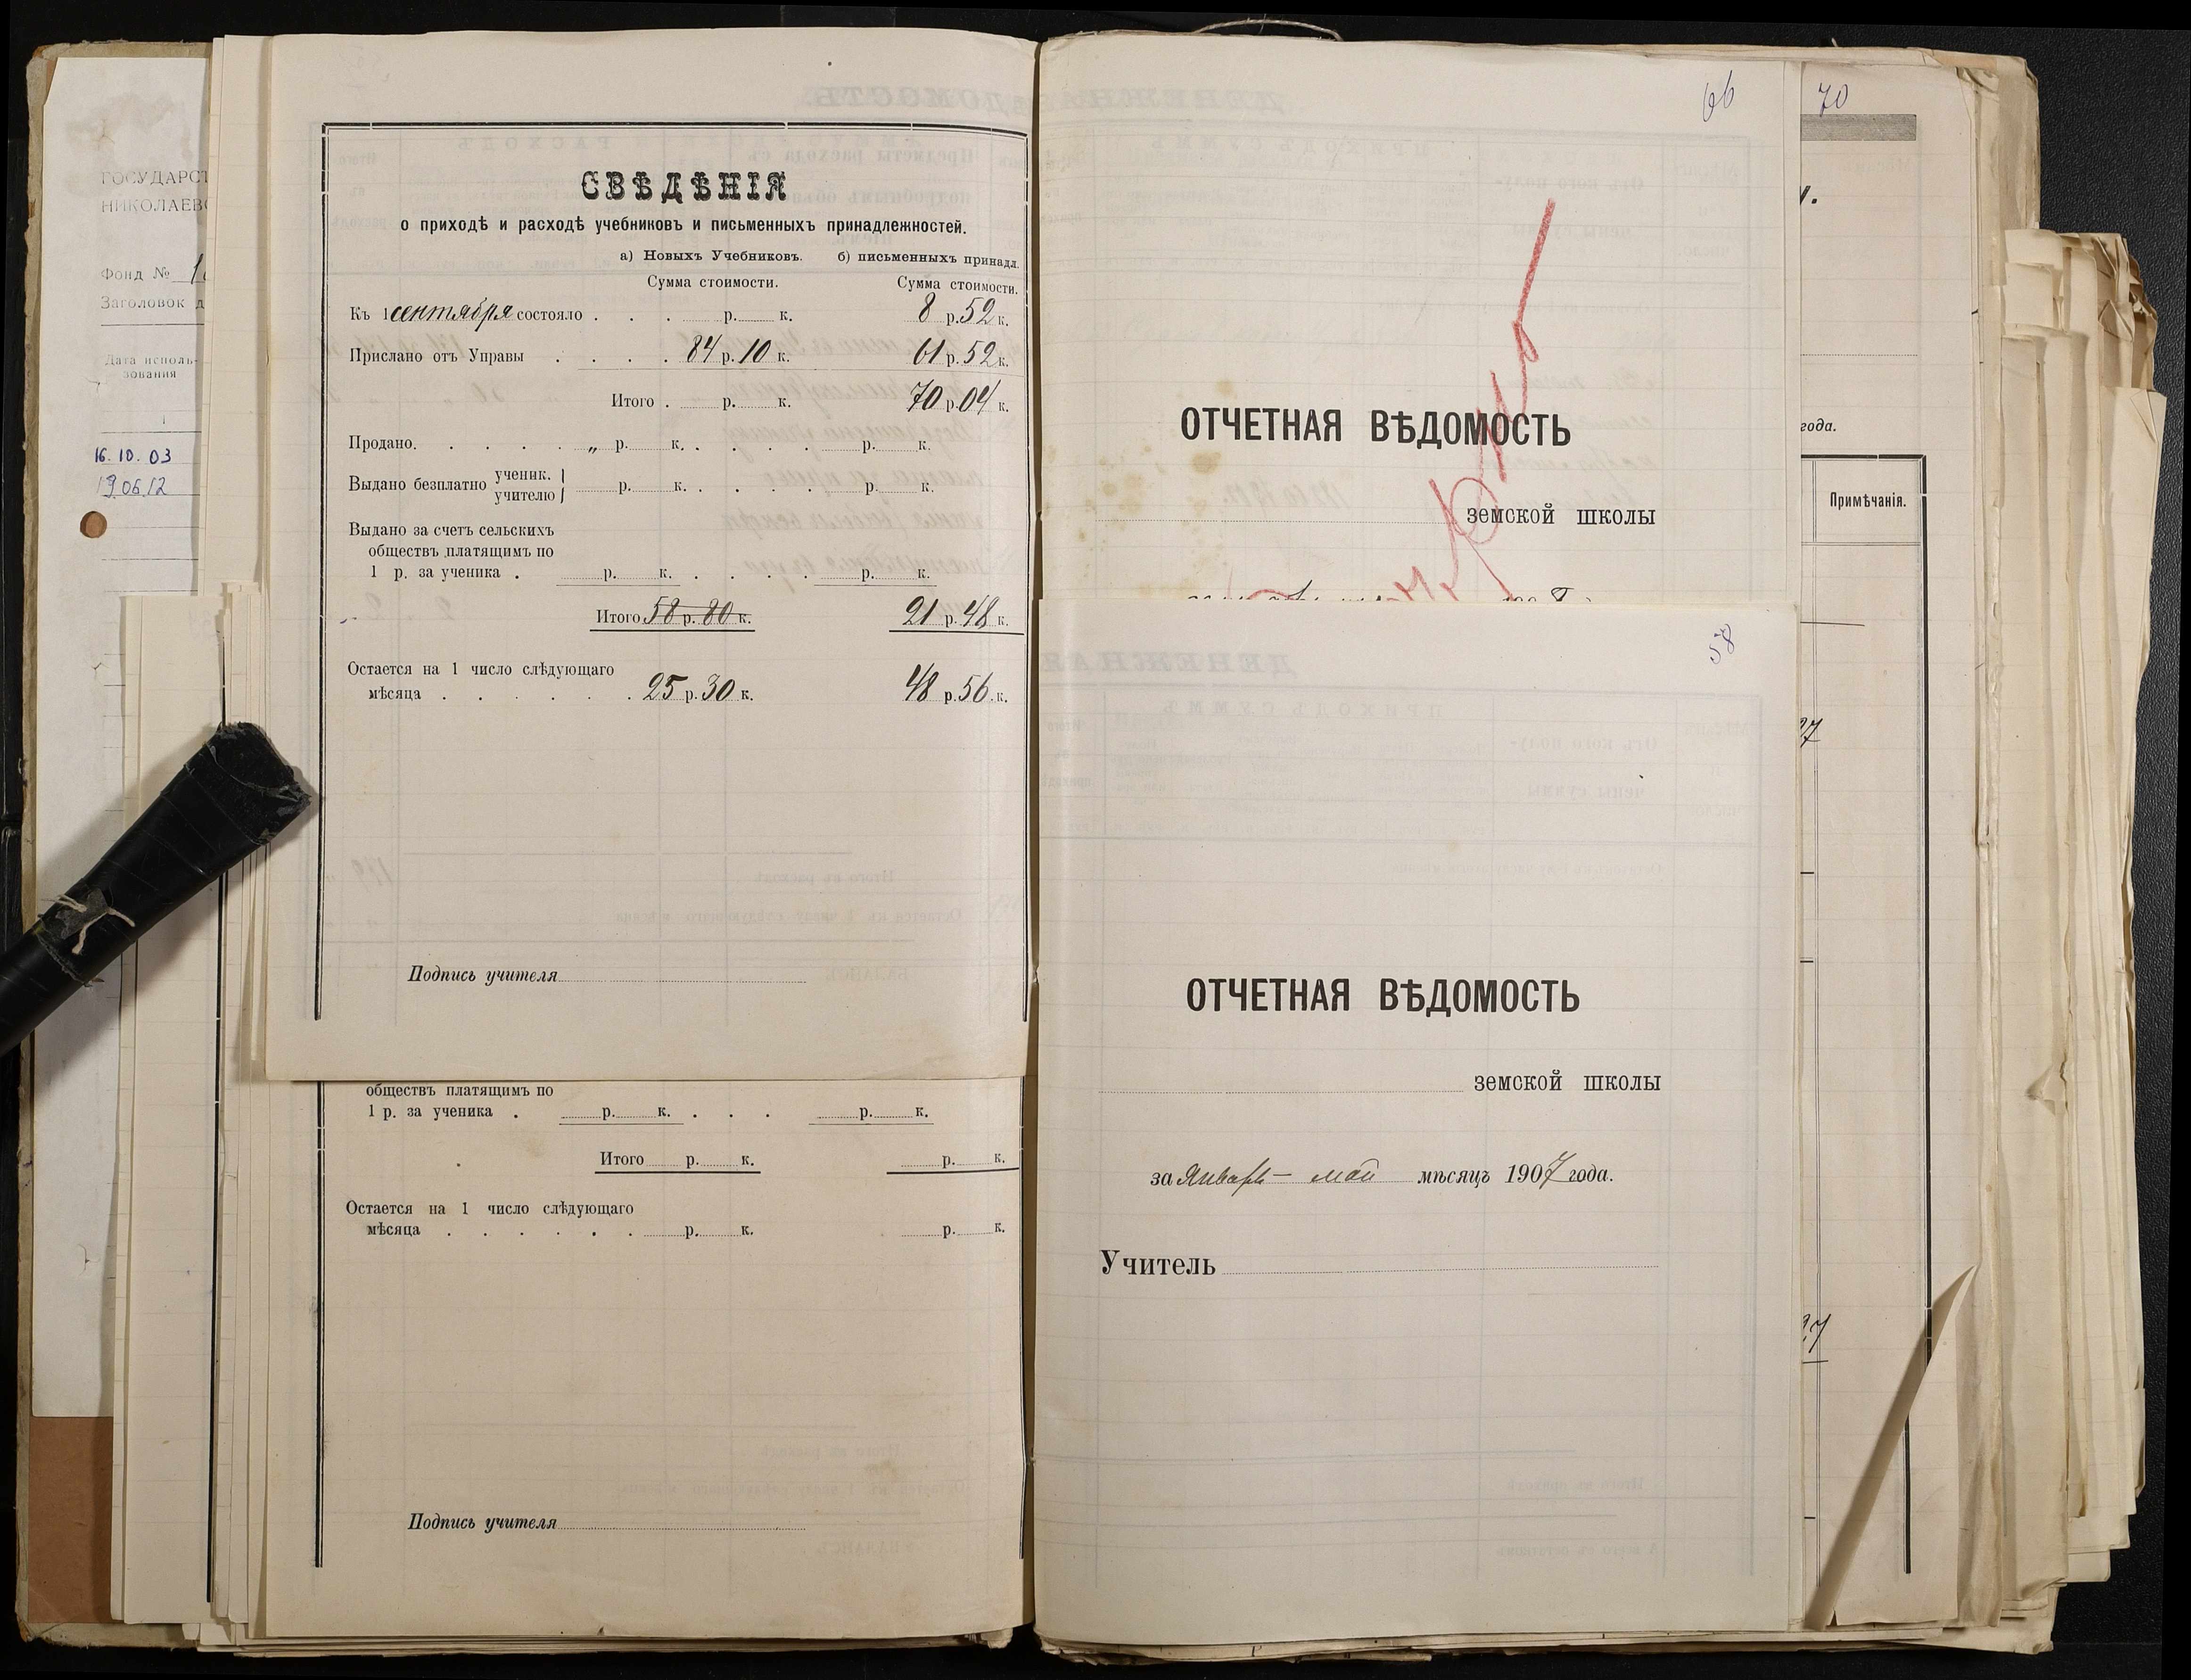 ГОСУДАРСТ
НИКОЛАЕВ
Фонд №
Заголовок д
Дата исполь-
зования
1
16.10.03
СВѢДѢНІЯ
о приходѣ и расходѣ учебниковъ и письменныхъ принадлежностей.
а) Новыхъ Учебниковъ. б) письменныхъ принадл.
Сумма стоимости. Сумма стоимости.
Къ 1 сентября состояло . . . р. к. 8 р. 52 к.
Прислано отъ Управы . . . . 84 р. 10 к. 61 р. 52 к.
Итого . р. к. 70 р. 04 к.
Продано. . . . . „ р. к. . . . . р. к.
Выдано безплатно ученик. учителю } р. к. . . . . р. к.
Выдано за счетъ сельскихъ
обществъ платящимъ по
1 р. за ученика . р. к. . . . . р. к.
Итого 58 р. 80 к. 21 р. 48 к.
Остается на 1 число слѣдующаго
мѣсяца . . . . . . 25 р. 30 к. 48 р. 56 к.
Подпись учителя
обществъ платящимъ по
1 р. за ученика . р. к. . . . р. к.
Итого р. к. р. к.
Остается на 1 число слѣдующаго
мѣсяца . . . . . . р. к. р. к.
Подпись учителя
66
ОТЧЕТНАЯ ВѢДОМОСТЬ
земской школы
58
ОТЧЕТНАЯ ВѢДОМОСТЬ
земской школы
за Январь – май мѣсяцъ 1907 года.
Учитель
70
года.
Примѣчанія.